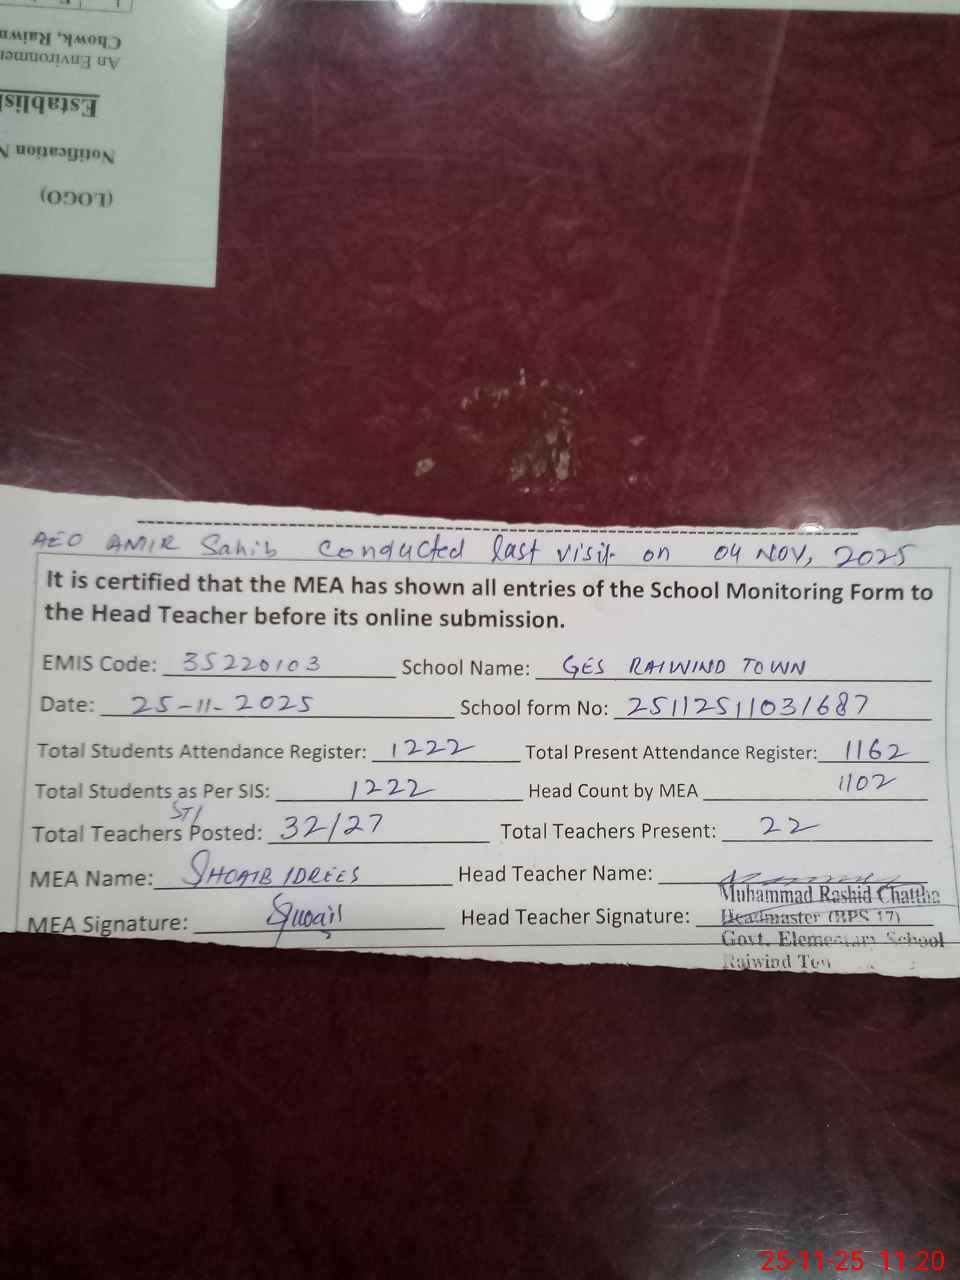 Chowk, Raiwn
An Environmen
Establis
Notification N
(LOGO)
AEO AMIR Sahib conducted last visit on 04 NOV, 2025
It is certified that the MEA has shown all entries of the School Monitoring Form to
the Head Teacher before its online submission.
EMIS Code: 35220103 School Name: GES RAIWIND TOWN
Date: 25-11-2025 School form No: 25112511031687
Total Students Attendance Register: 1222 Total Present Attendance Register: 1162
Total Students as Per SIS: 1222 Head Count by MEA 1102
STI
Total Teachers Posted: 32/27 Total Teachers Present: 22
MEA Name: SHOAIB IDREES Head Teacher Name:
Muhammad Rashid Chattha
MEA Signature: Shoaib Head Teacher Signature: Headmaster (BPS 17)
Govt. Elementary School
Raiwind
25-11-25 11:20